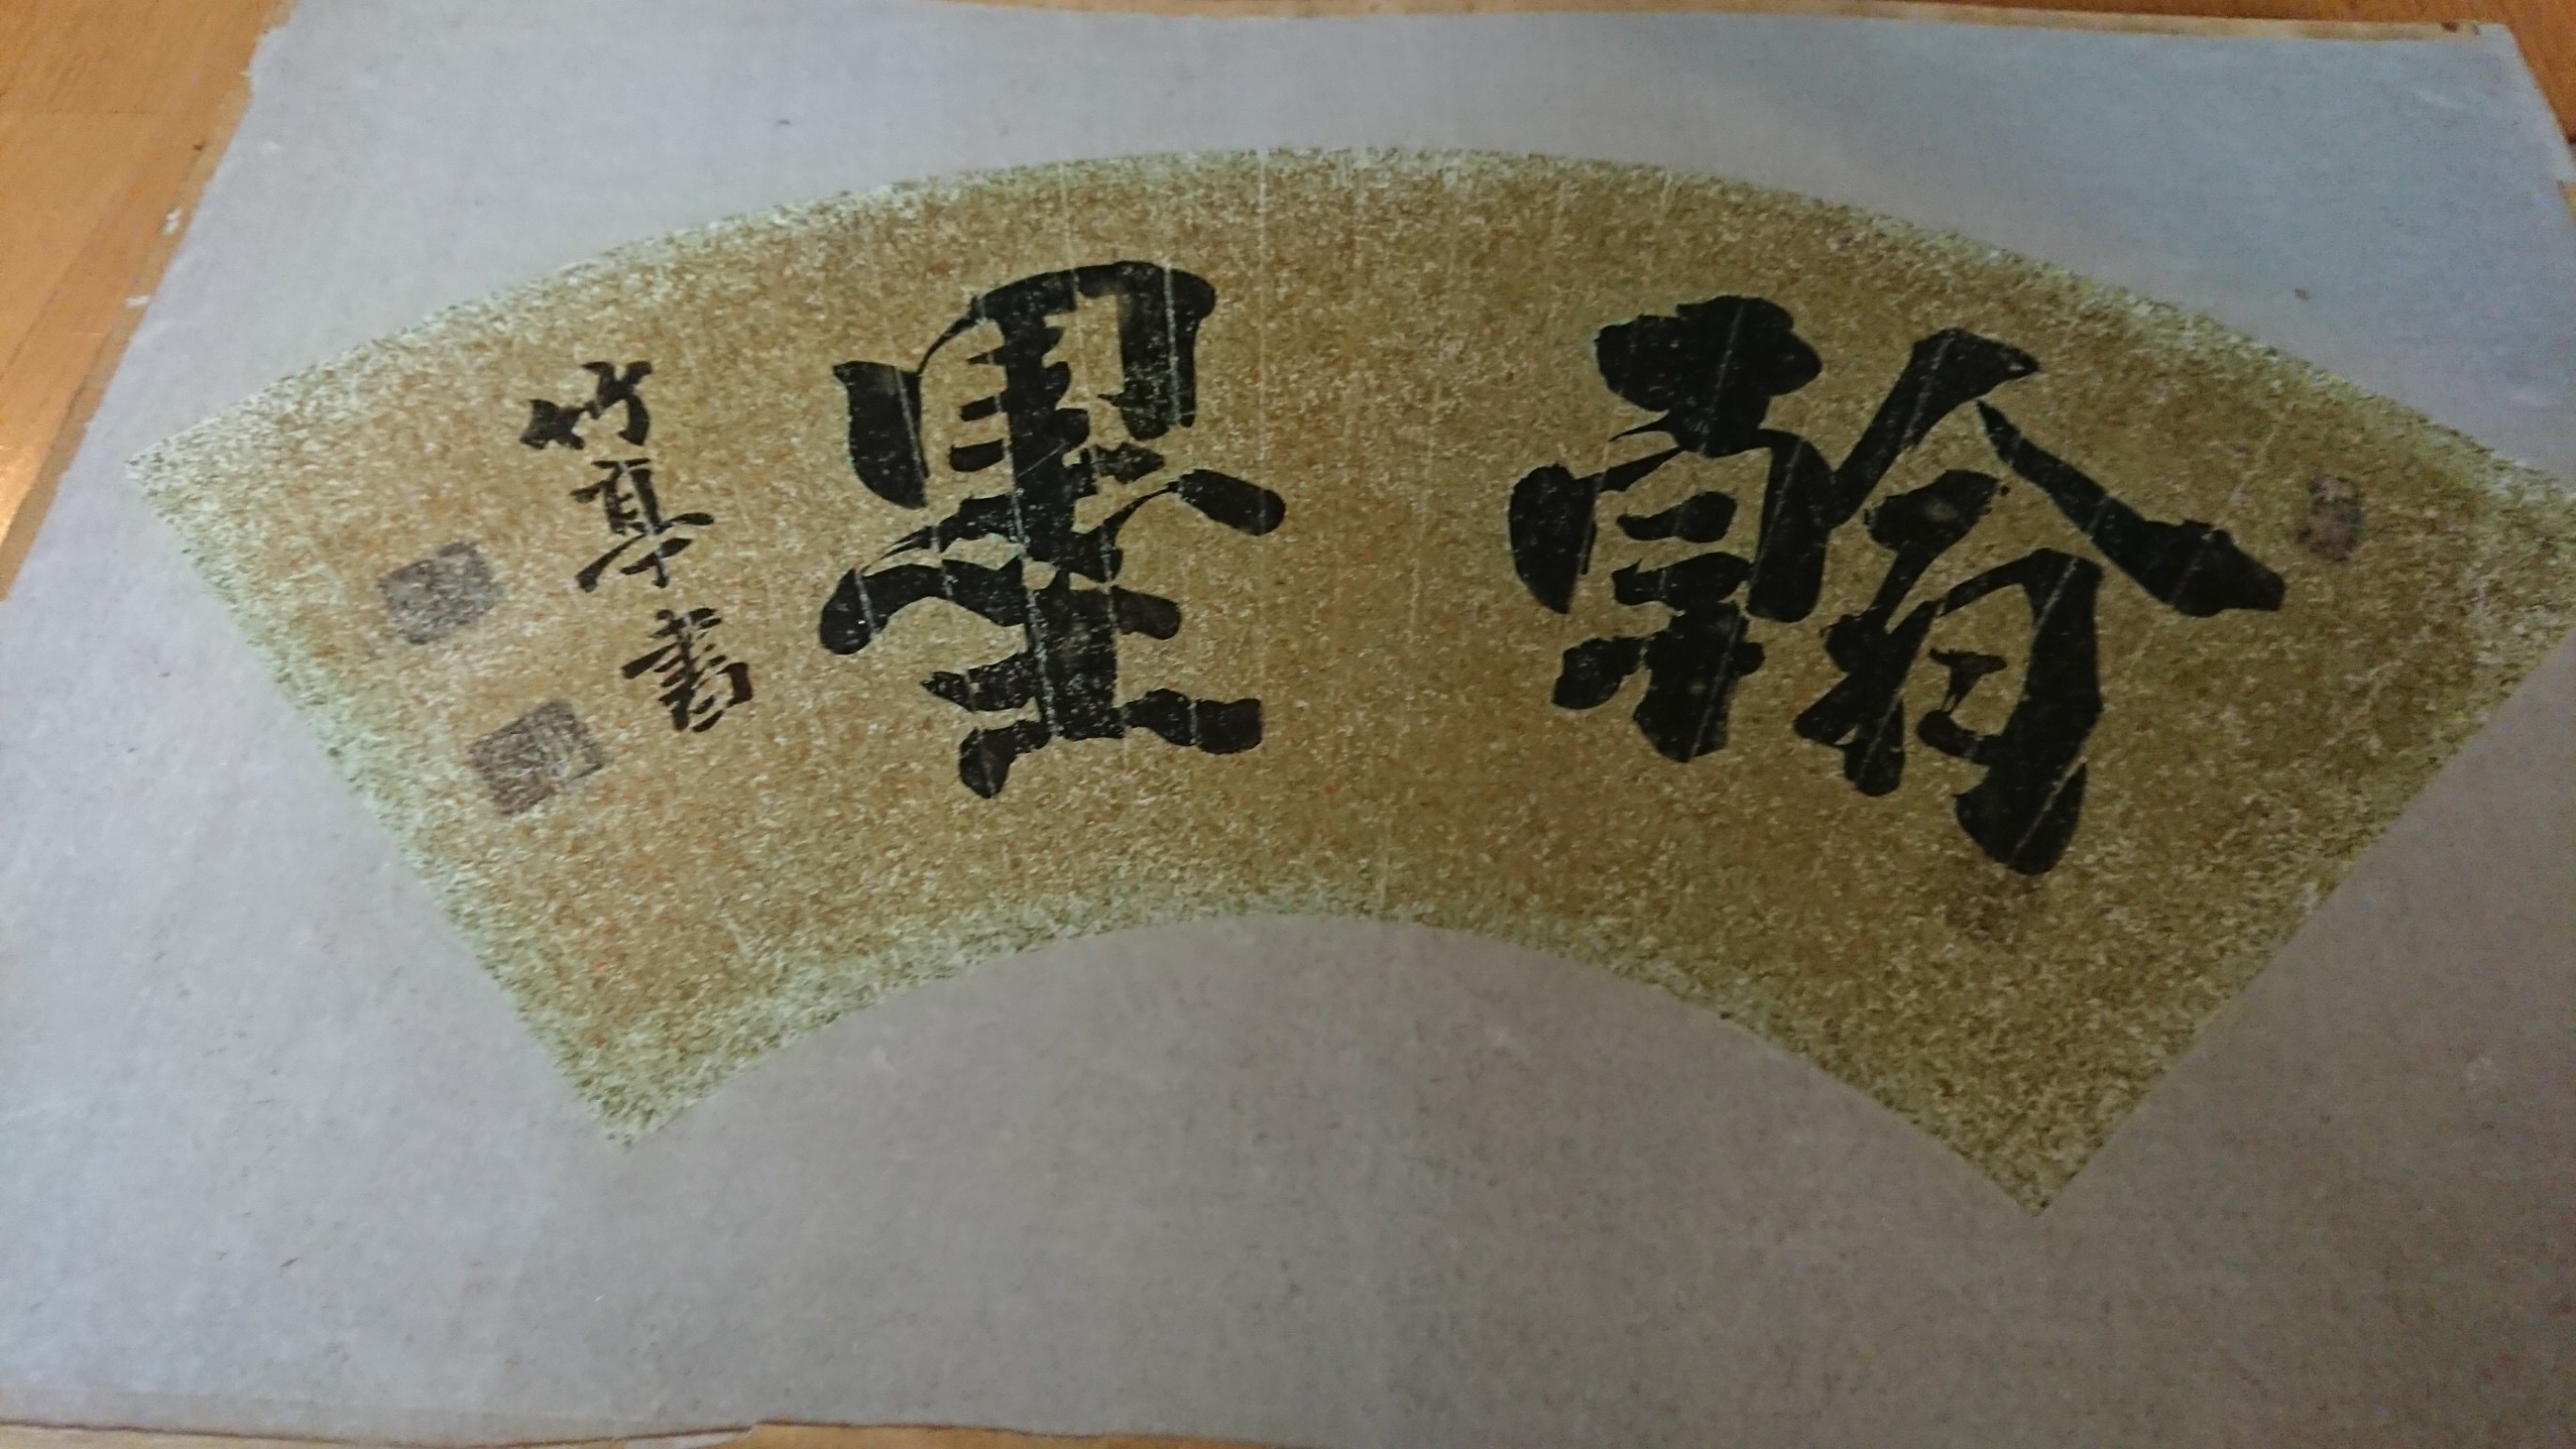 翰墨
竹亭書